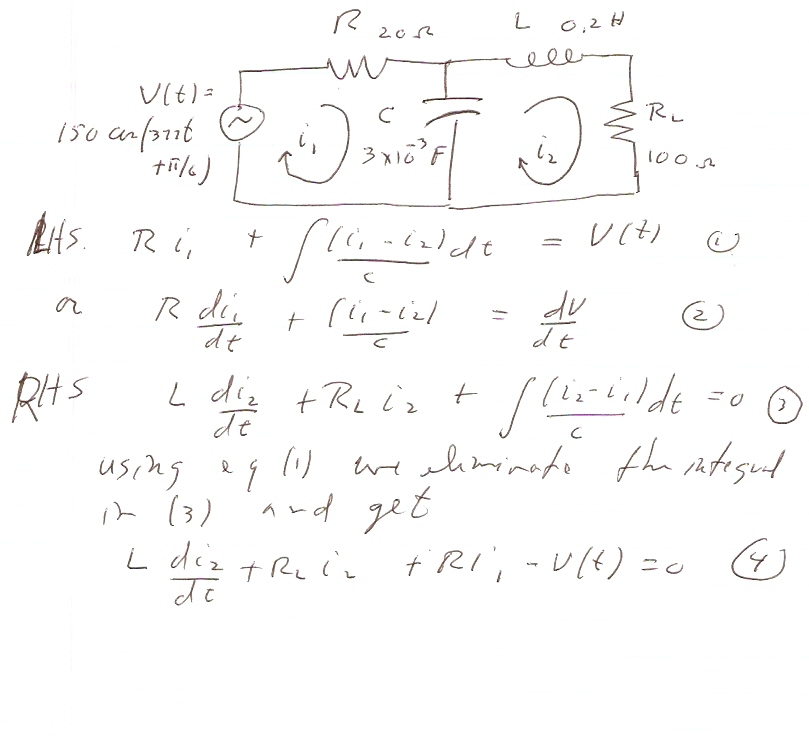 R 20Ω L 0,2 H
V(t) =
150 cos(377t
+π/6)
i₁
C
3×10⁻³ F
i₂
R_L
100 Ω
LHS. R i₁ + ∫ (i₁ - i₂)/c dt = V(t) ①
or R di₁/dt + (i₁-i₂)/c = dV/dt ②
RHS L di₂/dt + R_L i₂ + ∫ (i₂-i₁)/c dt = 0 ③
using eq (1) we eliminate the integral
in (3) and get
L di₂/dt + R_L i₂ + R i₁ - V(t) = 0 ④